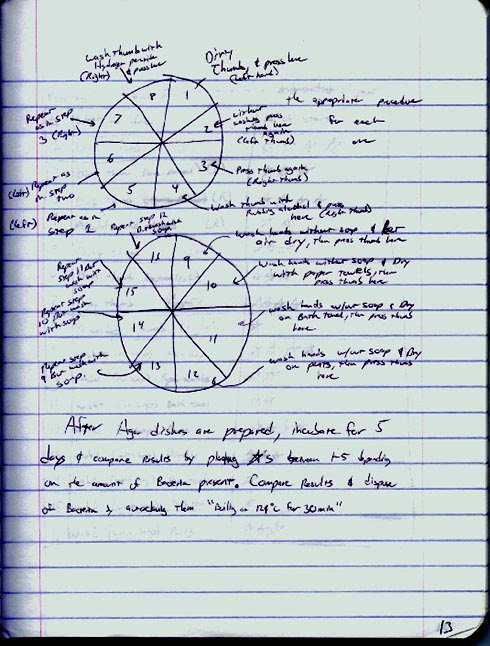 Wash thumb with
Hydrogen peroxide
& press here
(Right)
Dirty
Thumb, & press here
(Left hand)
the appropriate procedure
for each
one
without
washing press
thumb here
again
(left Thumb)
Press thumb again
(Right thumb)
wash thumb with
Rubbing alcohol & press
here (left thumb)
Repeat
as in step
3 (Right)
(left) Repeat as
in step
two
(left) Repeat as in
step 2
8
1
7
2
6
3
5
4
Repeat step 12
soap
wash hands without soap & let
air dry, then press thumb here
wash hands without soap & Dry
with paper towels, then
press thumb here
wash hands w/out soap & Dry
on Bath towel, then press thumb
here
wash hands w/out soap & Dry
on pants, then press thumb
here
Repeat
step 11 But
wash with
soap
Repeat step
10 But wash
with soap
Repeat step
9 But wash with
soap
16
9
15
10
14
11
13
12
After Agar dishes are prepared, incubate for 5
days & compare results by placing #s between 1-5 depending
on the amount of Bacteria present. Compare Results & dispose
of Bacteria by autoclaving them "Fully on 121°C for 30min"
13